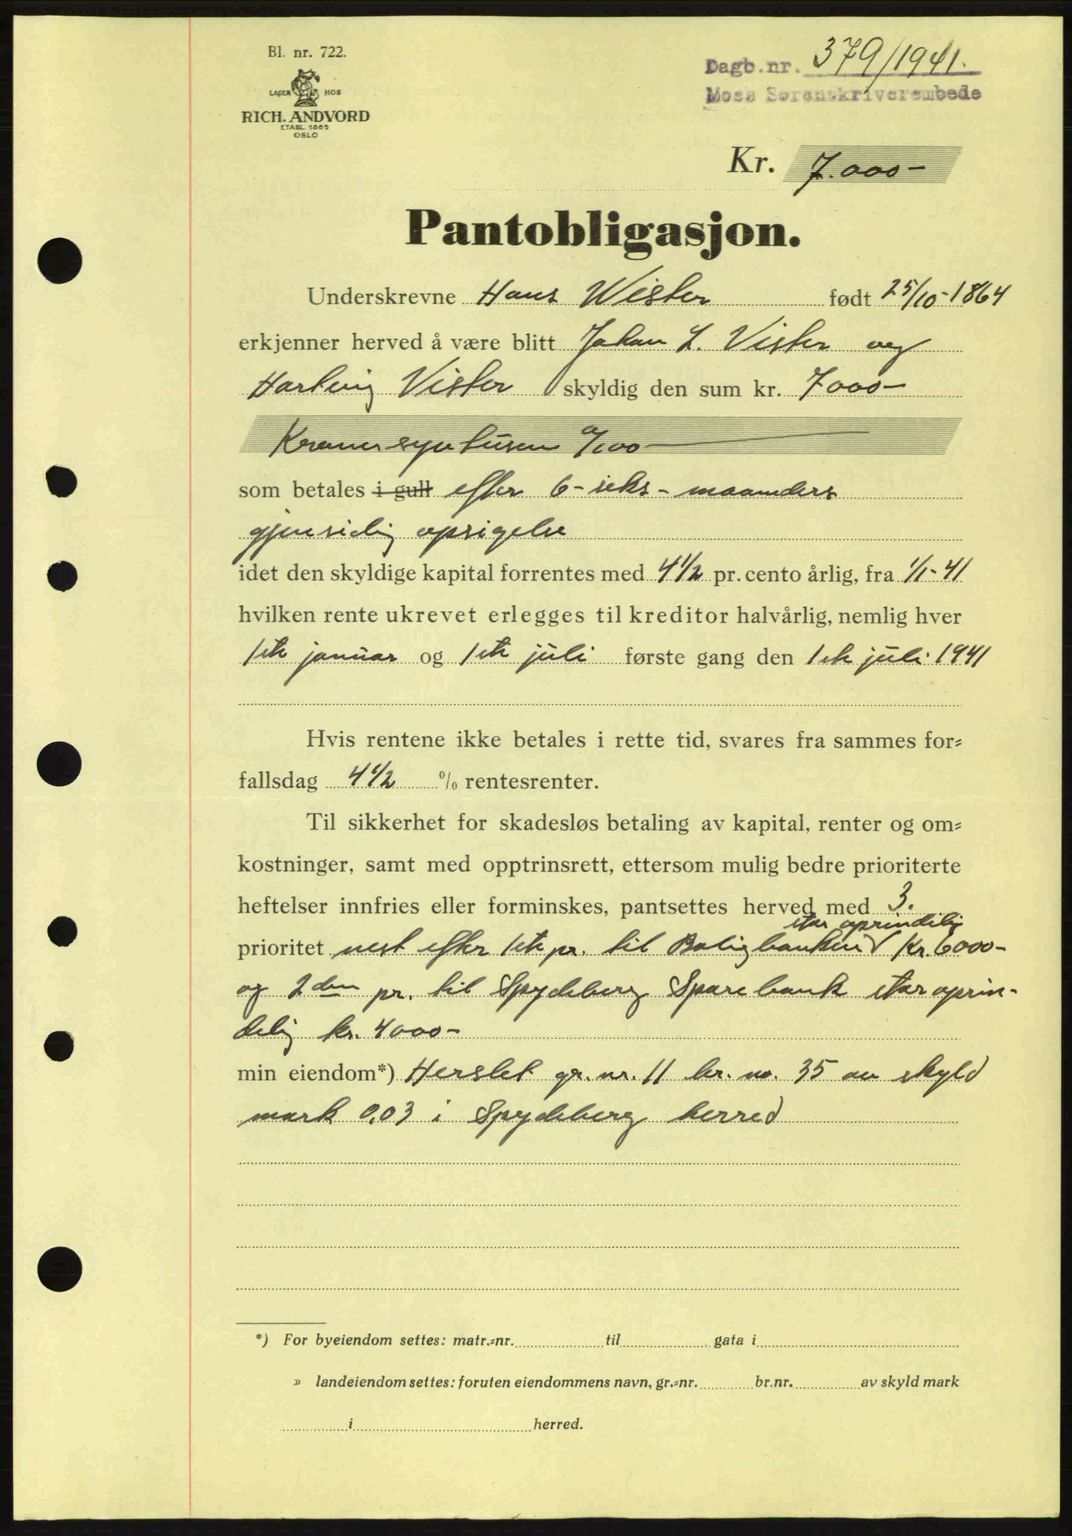 Bl. nr. 722.
LAGER HOS
RICH. ANDVORD
ETABL. 1865
OSLO
Dagb.nr. 379/1941.
Moss Sorenskriverembede
Kr. 7.000-
Pantobligasjon.
Underskrevne Hans Wister født 25/10-1864
erkjenner herved å være blitt Johan L. Vister og
Hartvig Vister skyldig den sum kr. 7000-
Kroner syv tusen 0/100
som betales i gull efter 6-seks-maaneders
gjensidig opsigelse
idet den skyldige kapital forrentes med 4 1/2 pr. cento årlig, fra 1/1-41
hvilken rente ukrevet erlegges til kreditor halvårlig, nemlig hver
1ste januar og 1ste juli første gang den 1ste juli 1941
Hvis rentene ikke betales i rette tid, svares fra sammes for=
fallsdag 4 1/2 % rentesrenter.
Til sikkerhet for skadesløs betaling av kapital, renter og om=
kostninger, samt med opptrinsrett, ettersom mulig bedre prioriterte
heftelser innfries eller forminskes, pantsettes herved med 3.
stor oprindelig
prioritet nest efter 1ste pr. til Boligbanken Kr. 6000-
og 2den pr. til Spydeberg Sparebank stor oprin-
delig kr. 4000-
min eiendom*) Herslet gr. nr. 11 br. no. 35 av skyld
mark 0,03 i Spydeberg herred
*) For byeiendom settes: matr.=nr. til gata i
» landeiendom settes: foruten eiendommens navn, gr.=nr. br.nr. av skyld mark
i herred.